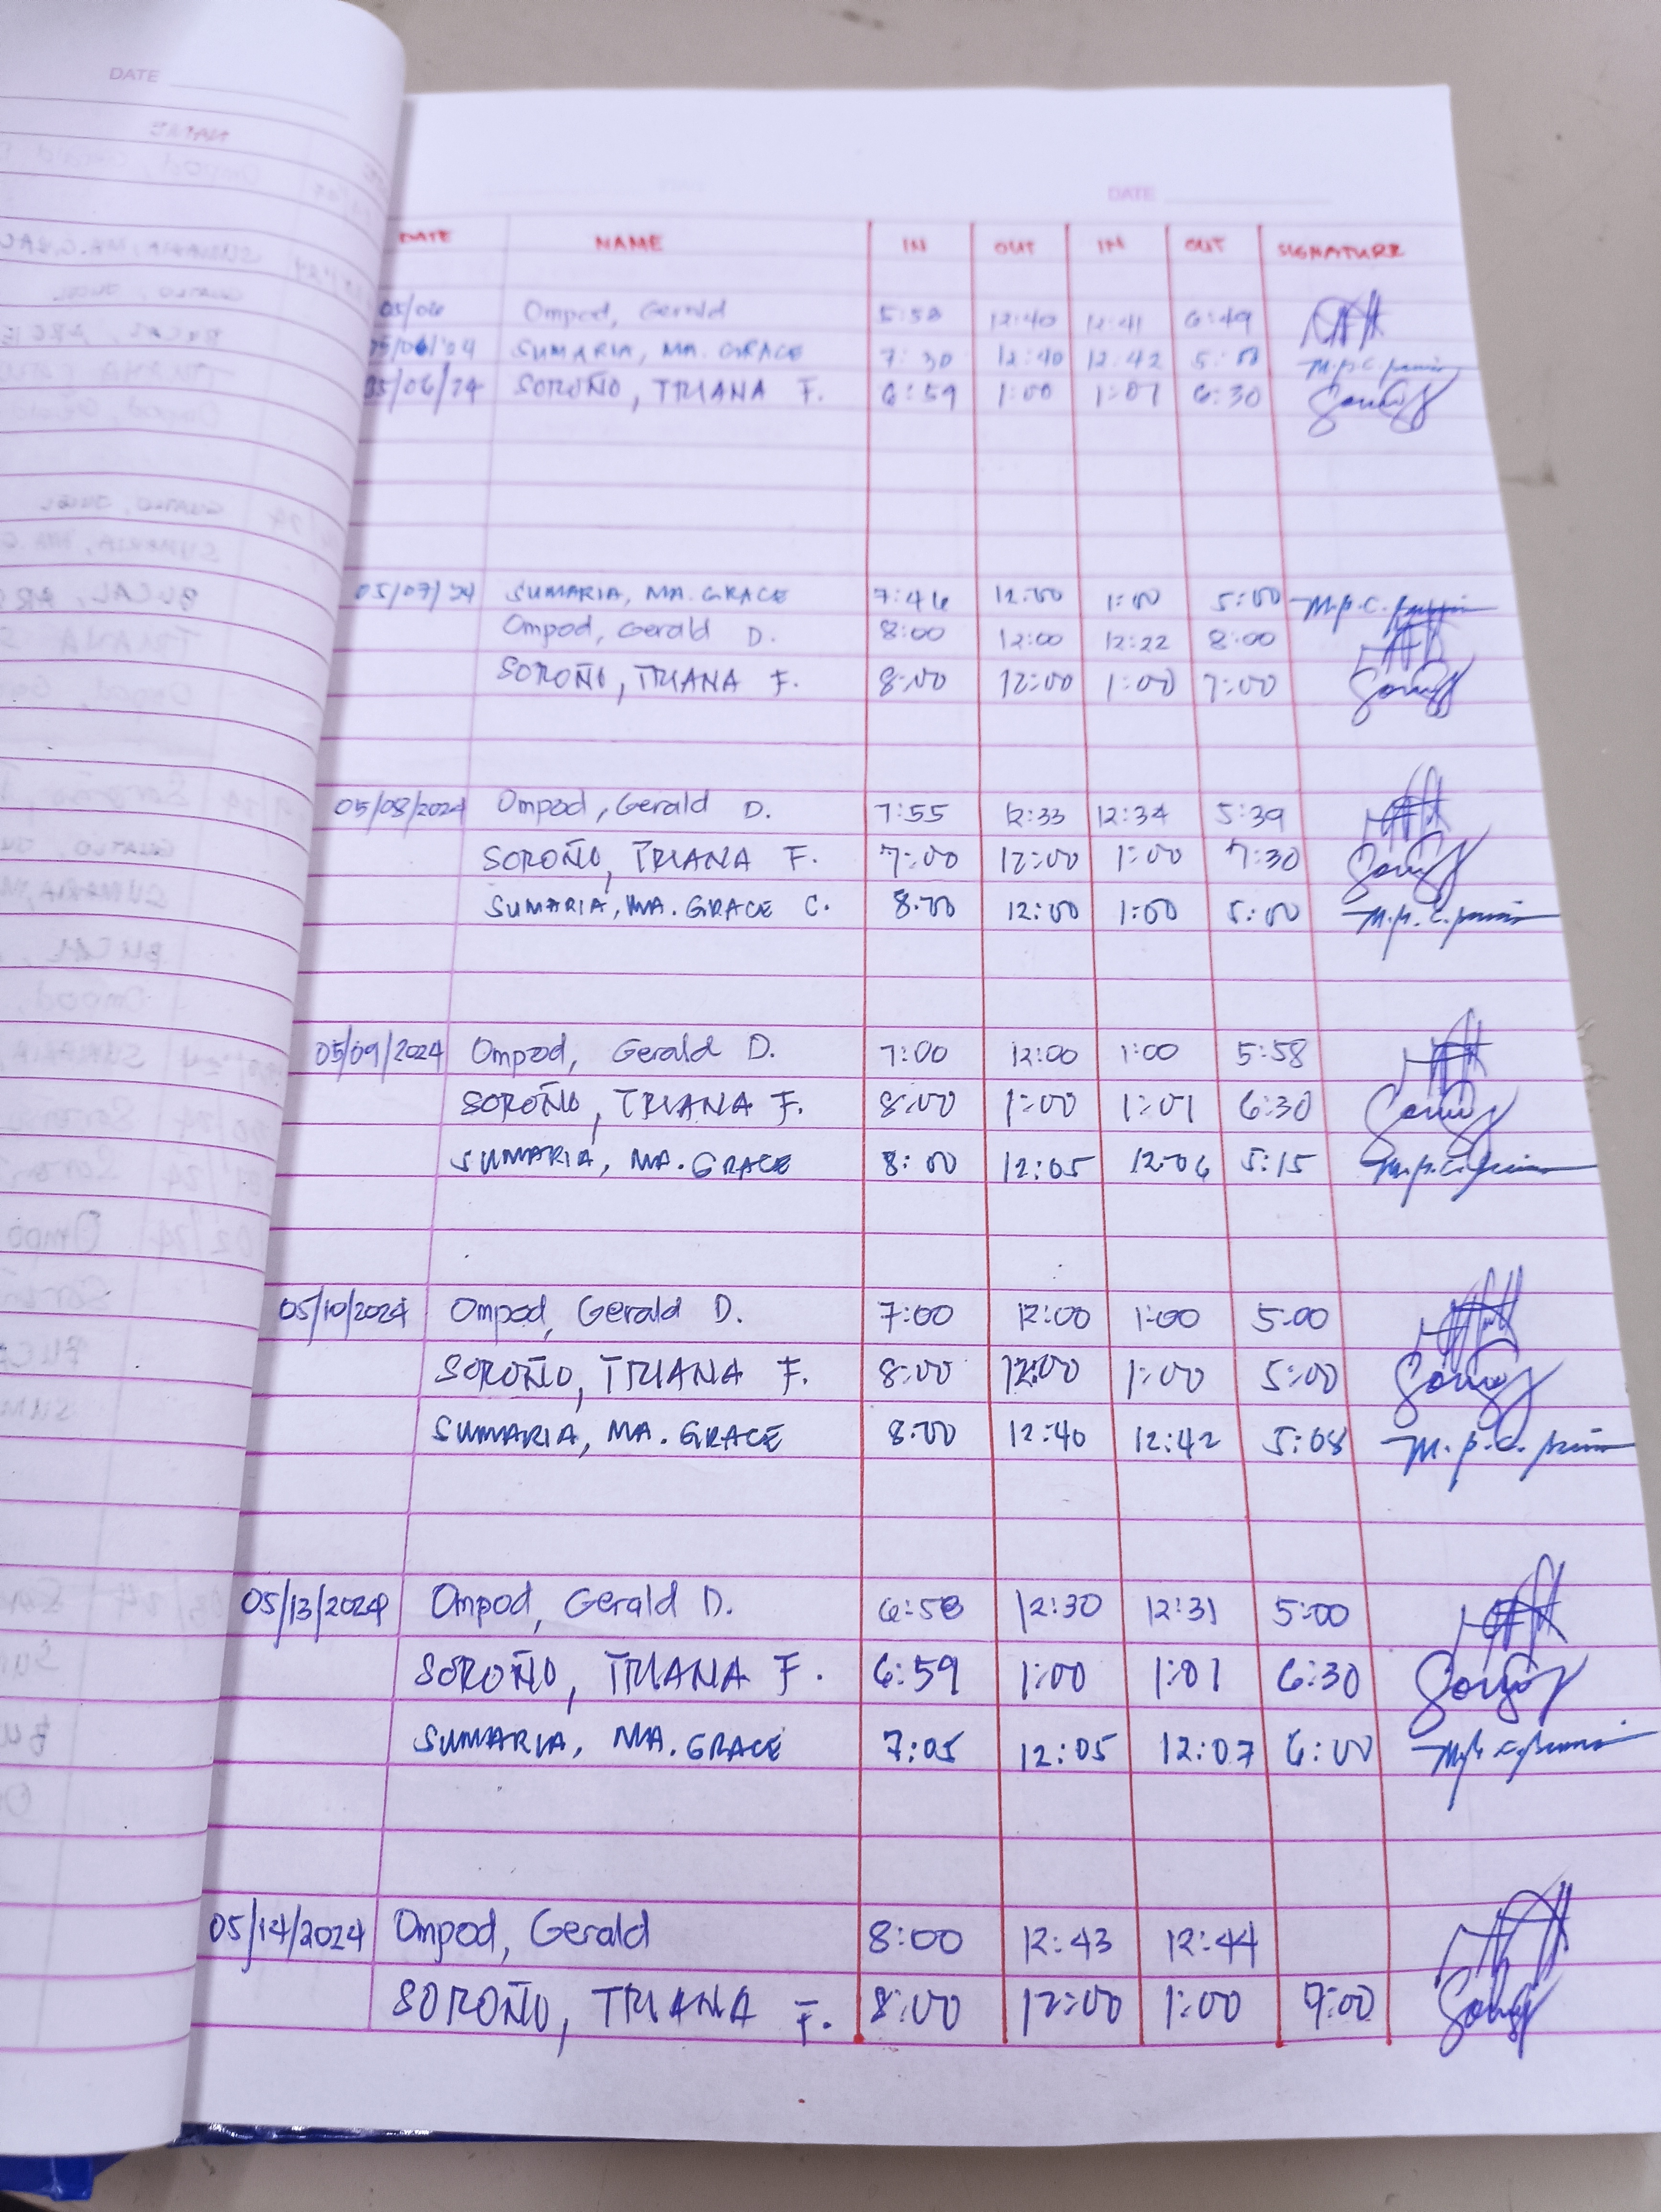 DATE
DATE
DATE NAME IN OUT IN OUT SIGNATURE
05/06 Ompod, Gerald 5:58 12:40 12:41 6:49
05/06/24 SUMARIA, MA. GRACE 7:30 12:40 12:42
05/06/24 SOROÑO, TRIANA F. 6:59 1:00 1:01 6:30
05/07/24 SUMARIA, MA. GRACE 7:46 12:00 1:00 5:00
Ompod, Gerald D. 8:00 12:00 12:22 8:00
SOROÑO, TRIANA F. 8:00 12:00 1:00 7:00
05/08/2024 Ompod, Gerald D. 7:55 12:33 12:34 5:39
SOROÑO, TRIANA F. 7:00 12:00 1:00 7:30
SUMARIA, MA. GRACE C. 8:00 12:00 1:00 5:00
05/09/2024 Ompod, Gerald D. 7:00 12:00 1:00 5:58
SOROÑO, TRIANA F. 8:00 1:00 1:01 6:30
SUMARIA, MA. GRACE 8:00 12:05 12:06 5:15
05/10/2024 Ompod, Gerald D. 7:00 12:00 1:00 5:00
SOROÑO, TRIANA F. 8:00 12:00 1:00 5:00
SUMARIA, MA. GRACE 8:00 12:40 12:42 5:08
05/13/2024 Ompod, Gerald D. 6:58 12:30 12:31 5:00
SOROÑO, TRIANA F. 6:59 1:00 1:01 6:30
SUMARIA, MA. GRACE 7:05 12:05 12:07 6:00
05/14/2024 Ompod, Gerald 8:00 12:43 12:44
SOROÑO, TRIANA F. 8:00 12:00 1:00 9:00